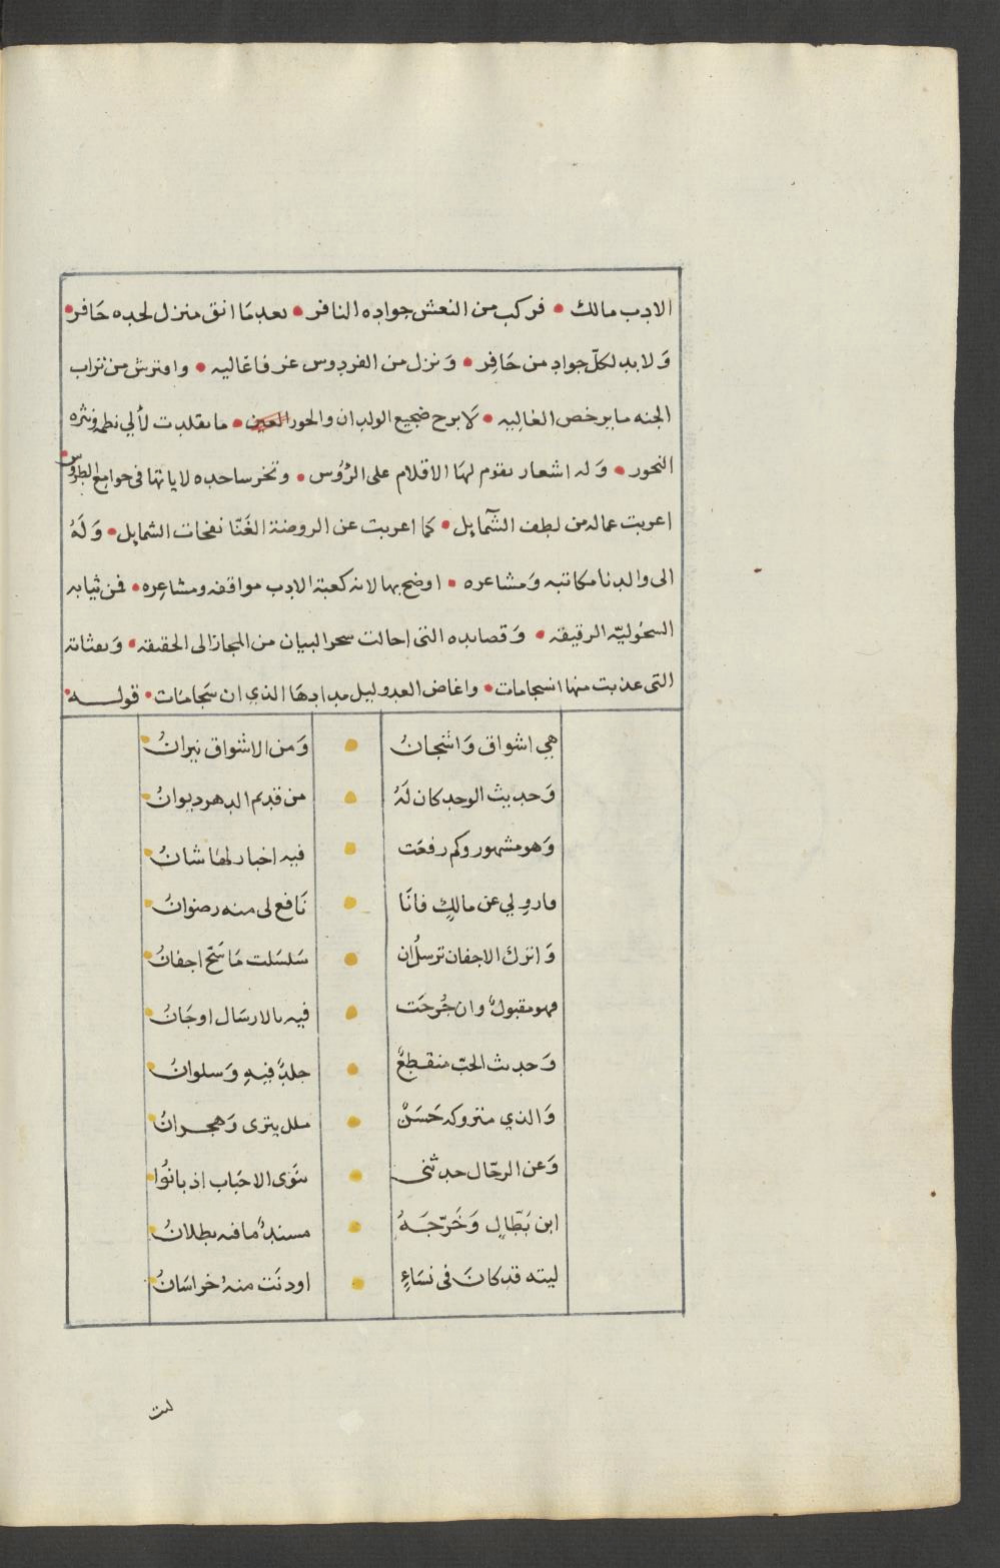 الادب مالك • فركب من النعش جواده النافر • بعد ما انق منزل لحده حَافر •
وَلا بد لكلّ جواد من حَافِر • وَنزل من الفردوس غرفا غاليه • وافترش من تراب
الجنه ما يرخص الغاليه • لَا برح ضجيع الولدان والحور العين • ما تقلدت لألي نظمه ونثره
النحور • وَله اشعار تقوم لهَا الاقلام على الرُؤس • وتخر ساجده لاياتها في جوامع الطروس •
اعربت عماله من لطف الشَّمايل • كما اعربت عن الروضة الغَنّا نفحات الشمايل • وَلَهُ
الى والدنا مكاتبه وَمشاعره • اوضح بها لانه كعبة الادب مواقفه ومشاعِره • فمن ثيابه
السحُوليّه الرقيقه • وَقصايده التى احالت سحر البيان من المجاز الى الحقيقه • وَنفثاته
التى عذبت منها انسجامات • واغاض العدو ليل مدادهَا الذي ان سَجامَات • قولــه •
هي اشواق وَاشجانُ • وَمن الاشواق نيرانُ
وَحديث الوجد كان لَهُ • من قديم الدهر ديوانُ
وَهو مشهور وكم رفعَت • فيه اخبار لهَا شانُ
فاروِ لي عن مالكٍ فانَا • نَافع لى منه رضوانُ
وَاترك الاجفان ترسلُ ان • سَلسَلت مَا سَحّ اجفانُ
فهو مقبولٌ وان جُرحَت • فيه بالارسَال اوجَانُ
وَحديث الحبّ منقطِعٌ • جلدٌ فيهِ وَسلوانُ
وَالذي متروكه حَسَنٌ • ملل يترى وَهجــرانُ
وَعن الرحّال حدثنى • بنَوى الاحبَاب اذ بانُوا
ابن بَطّالٍ وَخَرّجَــهُ • مسندٌ ما فيه بطلانُ
ليته قد كانَ فى نسَاءٍ • اودنَت منهُ خراسَانُ
ليت